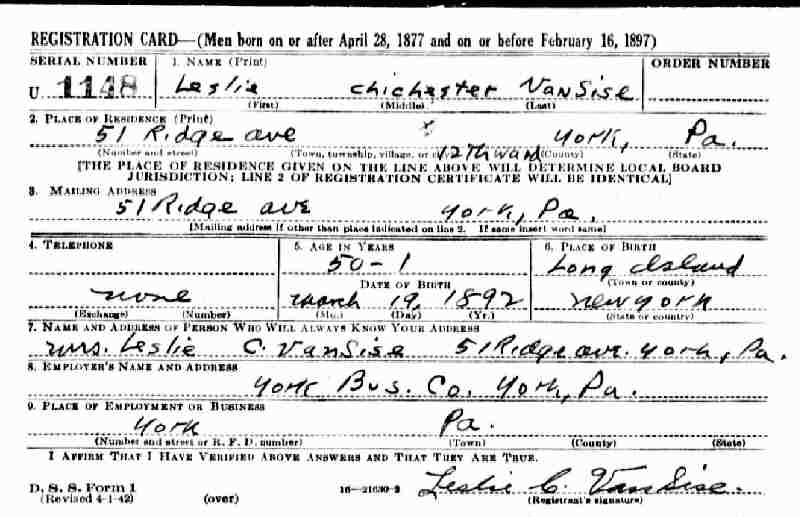 REGISTRATION CARD—(Men born on or after April 28, 1877 and on or before February 16, 1897)
SERIAL NUMBER 1. NAME (Print) ORDER NUMBER
U 1148 Leslie Chichester VanSise
(First) (Middle) (Last)
2. PLACE OF RESIDENCE (Print)
51 Ridge ave x 12th ward York, Pa.
(Number and street) (Town, township, village, or (County) (State)
[THE PLACE OF RESIDENCE GIVEN ON THE LINE ABOVE WILL DETERMINE LOCAL BOARD
JURISDICTION; LINE 2 OF REGISTRATION CERTIFICATE WILL BE IDENTICAL]
3. MAILING ADDRESS
51 Ridge ave York, Pa.
[Mailing address if other than place indicated on line 2. If same insert word same]
4. TELEPHONE 5. AGE IN YEARS 6. PLACE OF BIRTH
50-1 Long Island
DATE OF BIRTH (Town or county)
none March 19, 1892 New York
(Exchange) (Number) (Mo.) (Day) (Yr.) (State or country)
7. NAME AND ADDRESS OF PERSON WHO WILL ALWAYS KNOW YOUR ADDRESS
Mrs. Leslie C. VanSise 51 Ridge ave. York, Pa.
8. EMPLOYER'S NAME AND ADDRESS
York Bus. Co. York, Pa.
9. PLACE OF EMPLOYMENT OR BUSINESS
York Pa.
(Number and street or R. F. D. number) (Town) (County) (State)
I AFFIRM THAT I HAVE VERIFIED ABOVE ANSWERS AND THAT THEY ARE TRUE.
D. S. S. Form 1
(Revised 4-1-42) (over) 16—21630-2 Leslie C. VanSise.
(Registrant's signature)